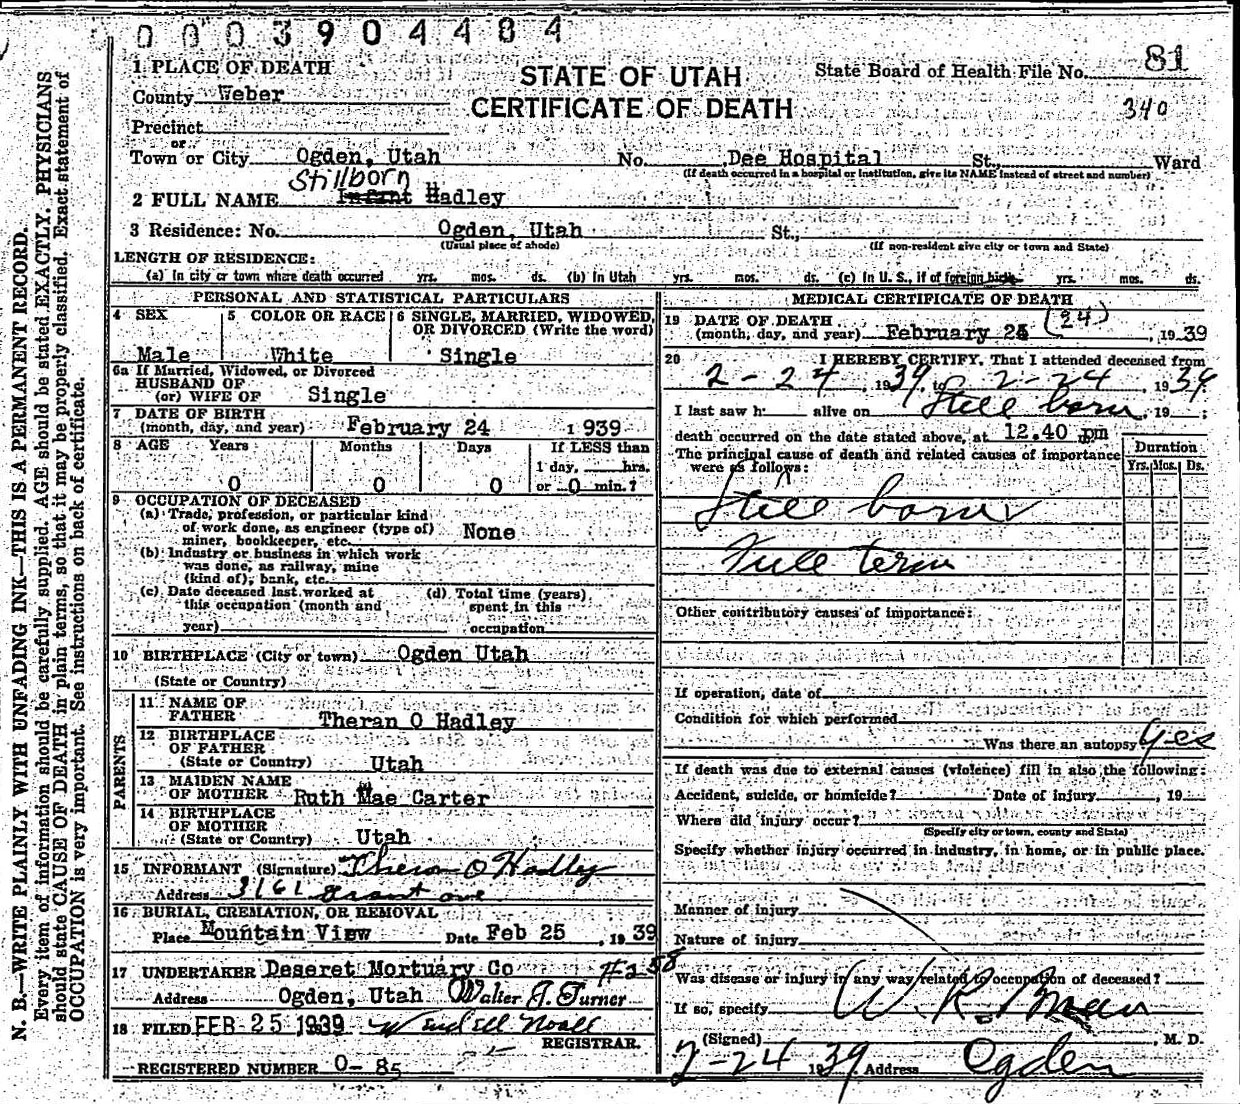 0003904484
81
1 PLACE OF DEATH
STATE OF UTAH
State Board of Health File No.
County Weber
CERTIFICATE OF DEATH
340
Precinct
or
Town or City Ogden, Utah No. Dee Hospital St., Ward
(If death occurred in a hospital or institution, give its NAME instead of street and number)
Stillborn
2 FULL NAME Infant Hadley
3 Residence: No. Ogden, Utah St.,
(Usual place of abode) (If non-resident give city or town and State)
LENGTH OF RESIDENCE:
(a) In city or town where death occurred yrs. mos. ds. (b) In Utah yrs. mos. ds. (c) In U. S., if of foreign birth yrs. mos. ds.
PERSONAL AND STATISTICAL PARTICULARS
4 SEX 5 COLOR OR RACE 6 SINGLE, MARRIED, WIDOWED,
OR DIVORCED (Write the word)
Male White Single
6a If Married, Widowed, or Divorced
HUSBAND OF
(or) WIFE OF Single
7 DATE OF BIRTH
(month, day, and year) February 24 1939
8 AGE Years Months Days If LESS than
1 day, hrs.
0 0 0 or 0 min.?
9 OCCUPATION OF DECEASED
(a) Trade, profession, or particular kind
of work done, as engineer (type of)
miner, bookkeeper, etc. None
(b) Industry or business in which work
was done, as railway, mine
(kind of), bank, etc.
(c) Date deceased last worked at (d) Total time (years)
this occupation (month and spent in this
year) occupation
10 BIRTHPLACE (City or town) Ogden Utah
(State or Country)
PARENTS
11 NAME OF
FATHER Theran O Hadley
12 BIRTHPLACE
OF FATHER
(State or Country) Utah
13 MAIDEN NAME
OF MOTHER Ruth Mae Carter
14 BIRTHPLACE
OF MOTHER
(State or Country) Utah
15 INFORMANT (Signature) Theron O Hadley
Address 3161 Grant ave
16 BURIAL, CREMATION, OR REMOVAL
Place Mountain View Date Feb 25, 1939
17 UNDERTAKER Deseret Mortuary Co #258
Address Ogden, Utah Walter J. Turner
18 FILED FEB 25 1939 Wendell Noall
REGISTRAR.
REGISTERED NUMBER 0-85
MEDICAL CERTIFICATE OF DEATH
19 DATE OF DEATH (24)
(month, day, and year) February 24, 1939
20 I HEREBY CERTIFY, That I attended deceased from
2-24 1939, to 2-24 1939
I last saw h alive on Still born, 19 ;
death occurred on the date stated above, at 12.40 pm
The principal cause of death and related causes of importance
were as follows:
Duration
Yrs. Mos. Ds.
Still born
Full term
Other contributory causes of importance:
If operation, date of
Condition for which performed
Was there an autopsy Yes
If death was due to external causes (violence) fill in also the following:
Accident, suicide, or homicide? Date of injury, 19
Where did injury occur?
(Specify city or town, county and State)
Specify whether injury occurred in industry, in home, or in public place.
Manner of injury
Nature of injury
Was disease or injury in any way related to occupation of deceased?
If so, specify
(Signed) W. K. , M. D.
2-24 1939 Address Ogden
N. B.—WRITE PLAINLY WITH UNFADING INK—THIS IS A PERMANENT RECORD.
Every item of information should be carefully supplied. AGE should be stated EXACTLY. PHYSICIANS
should state CAUSE OF DEATH in plain terms, so that it may be properly classified. Exact statement of
OCCUPATION is very important. See instructions on back of certificate.